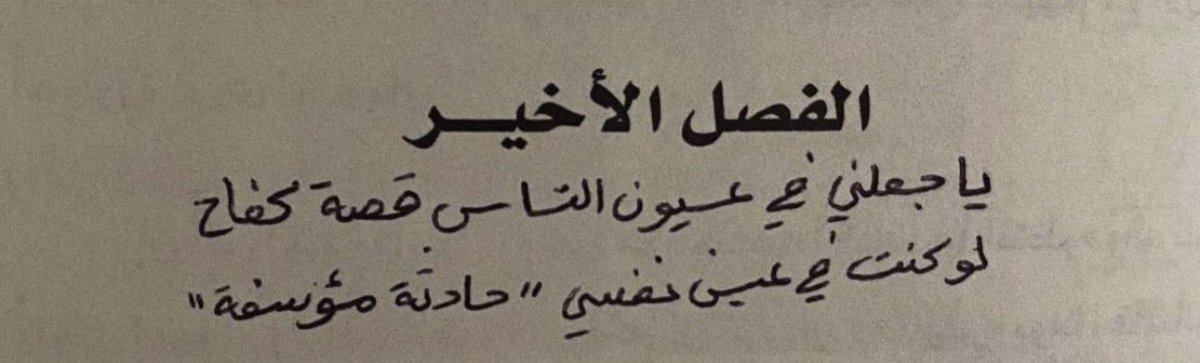 الفصل الأخير
ياجعلني في عيون الناس قصة كفاح
لو كنت في عين نفسي "حادثة مؤسفة"